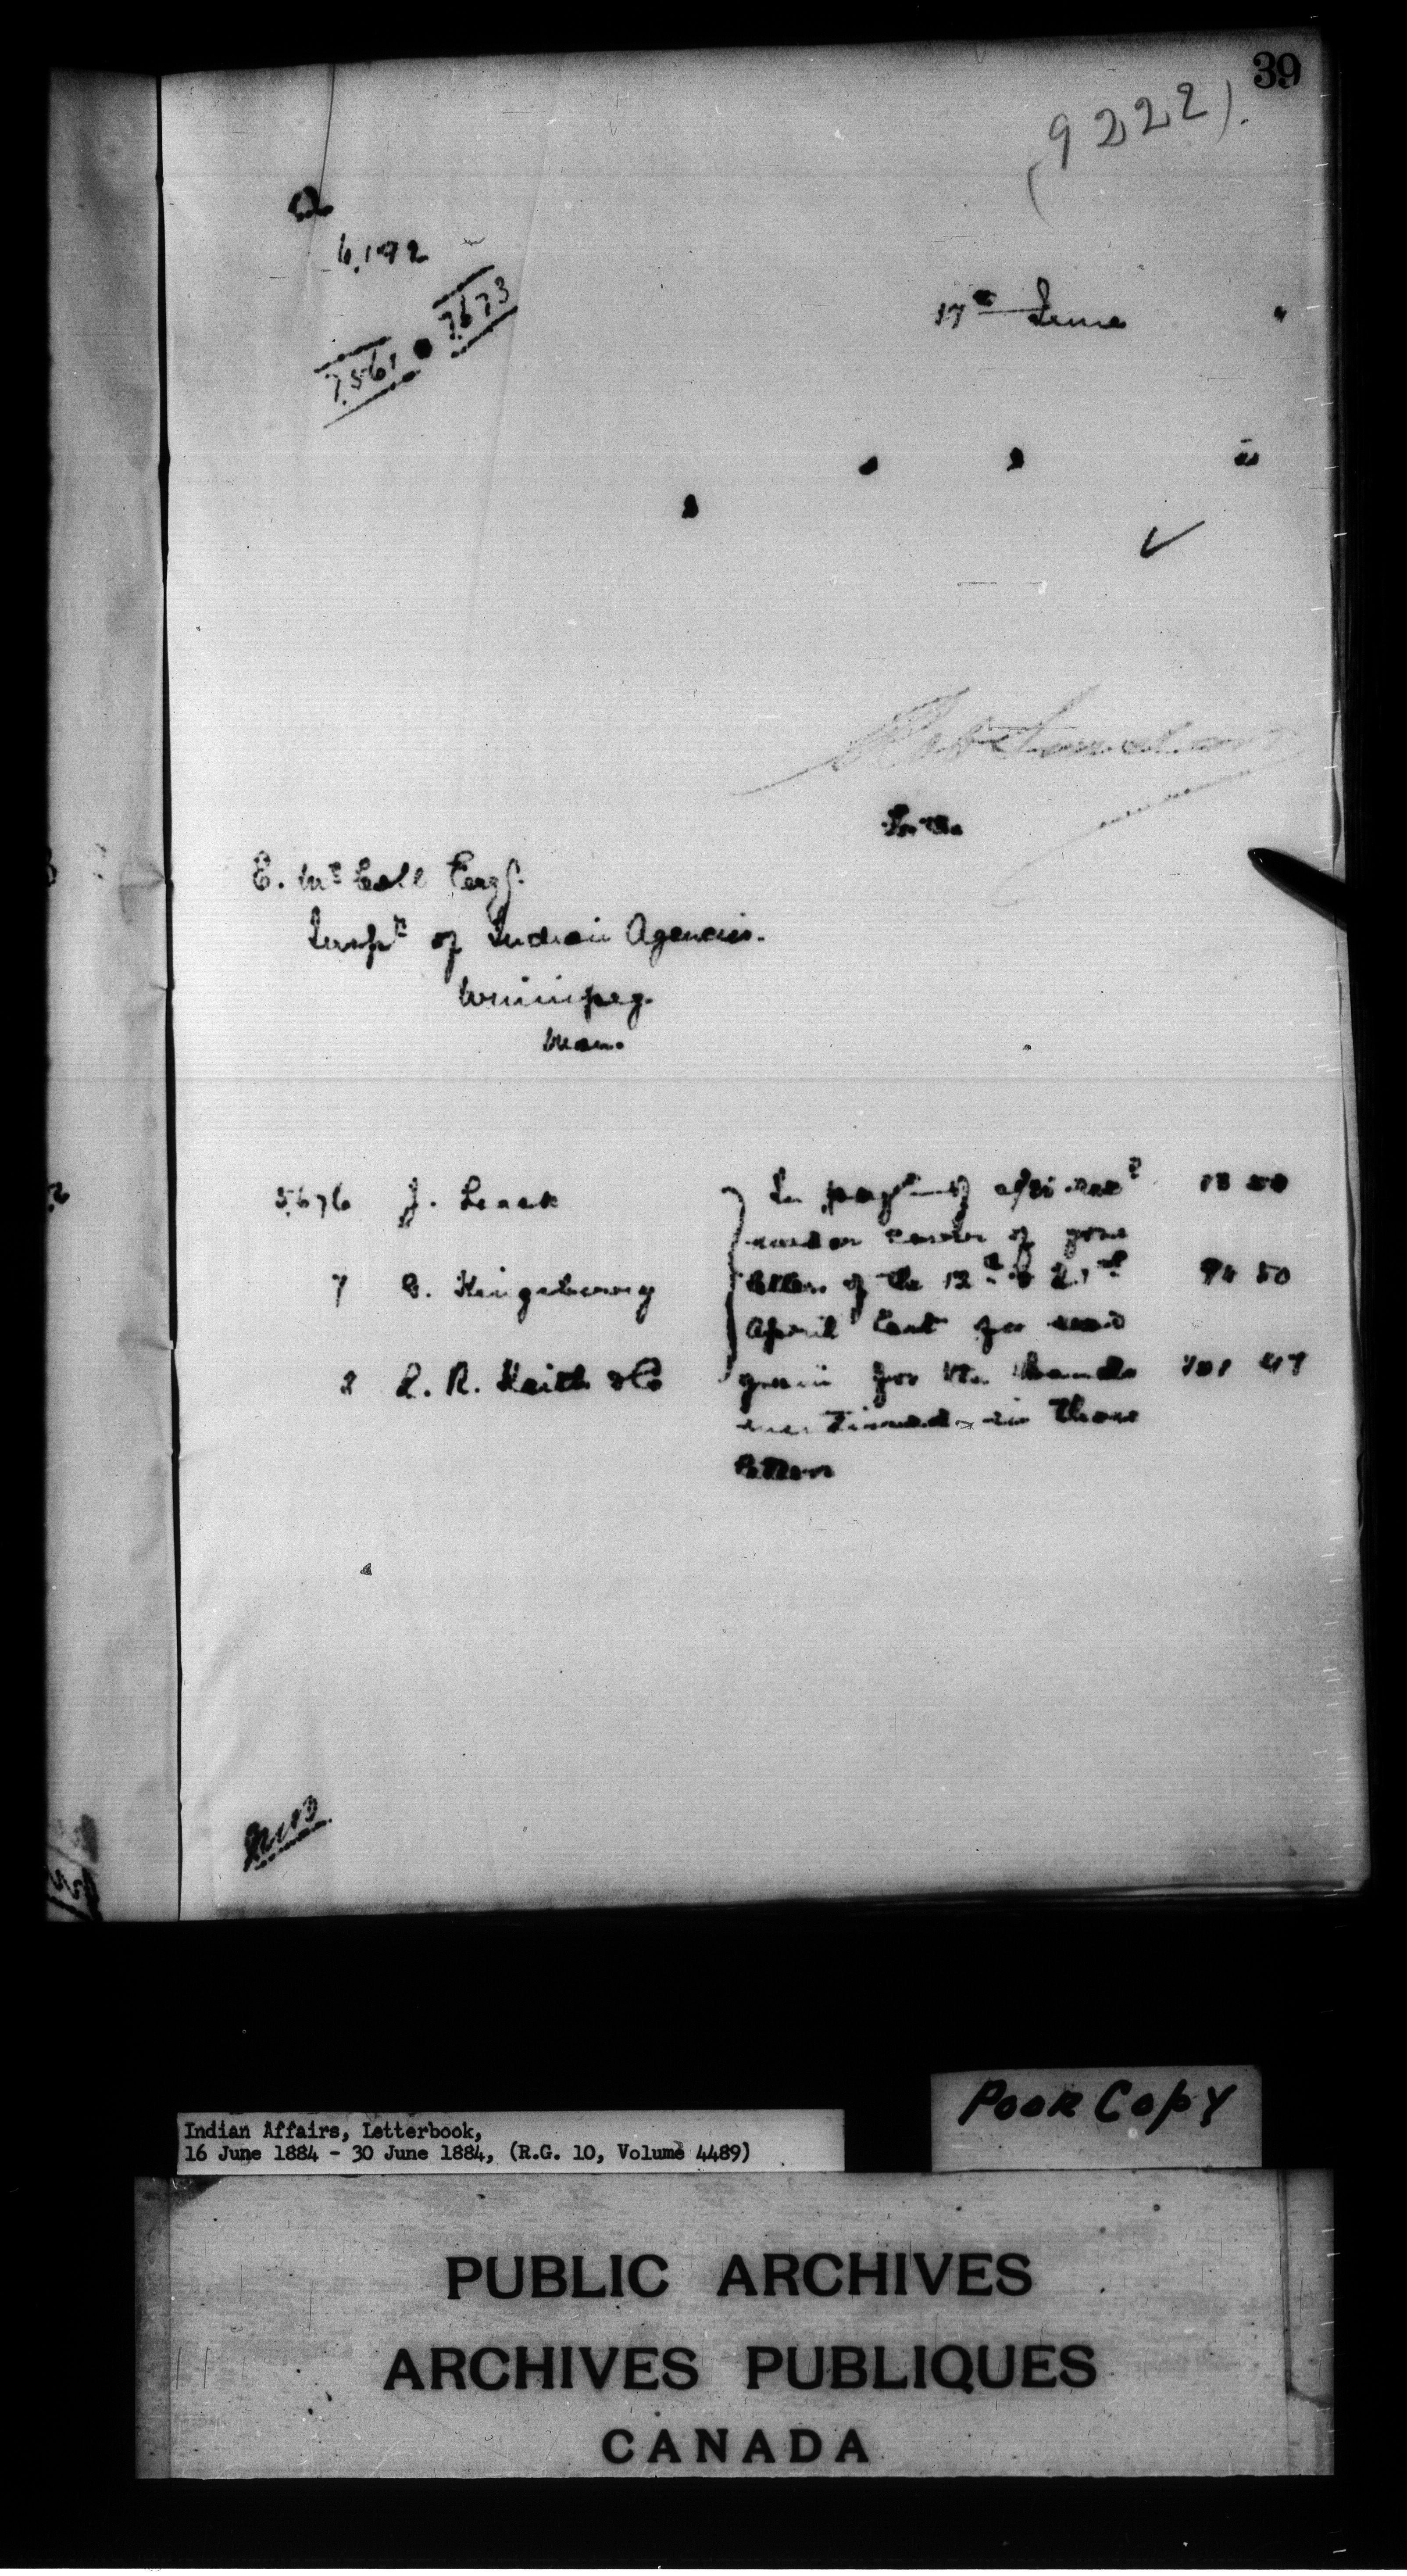 39
(9222).
6,192
7561 7673
17th June "
For the
E. McColl Esqr.
Inspr of Indian Agencies.
Winnipeg.
Man.
5676 J. Leask In payt of a/cs recd 13
under cover of your
7 Kingsberry letters of the 12th & 21st 94 50
April last for seed
8 R. R. Keith & Co grain for the Bands 101 47
mentioned in those
letters
Indian Affairs, Letterbook,
16 June 1884 - 30 June 1884, (R.G. 10, Volume 4489)
POOR COPY
PUBLIC ARCHIVES
ARCHIVES PUBLIQUES
CANADA